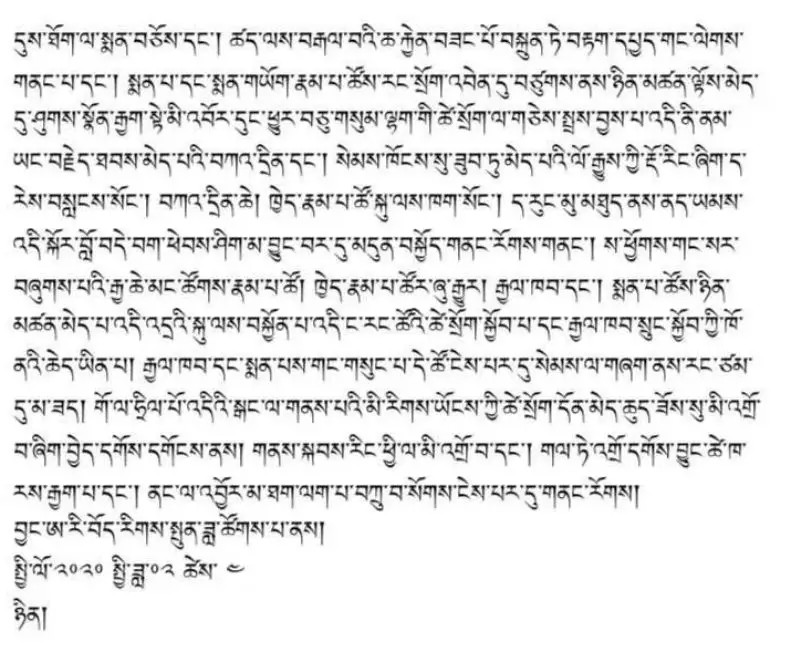 དུས་ཐོག་ལ་སྨན་བཅོས་དང་། ཚད་ལས་བརྒལ་བའི་ཆ་རྐྱེན་བཟང་པོ་བསྐྲུན་ཏེ་བརྟག་དཔྱད་གང་ལེགས་
གནང་པ་དང་། སྨན་པ་དང་སྨན་གཡོག་རྣམ་པ་ཚོས་རང་སྲོག་འབེན་དུ་བཙུགས་ནས་ཉིན་མཚན་ལྟོས་མེད་
དུ་ཤུགས་སྣོན་རྒྱག་སྟེ་མི་འབོར་དུང་ཕྱུར་བཅུ་གསུམ་ལྷག་གི་ཚེ་སྲོག་ལ་གཅེས་སྤྲས་བྱས་པ་འདི་ནི་ནམ་
ཡང་བརྗེད་ཐབས་མེད་པའི་བཀའ་དྲིན་དང་། སེམས་ཁོངས་སུ་ཟུབ་ཏུ་མེད་པའི་ལོ་རྒྱུས་ཀྱི་རྡོ་རིང་ཞིག་ད་
རེས་བསླངས་སོང་། བཀའ་དྲིན་ཆེ། ཁྱེད་རྣམ་པ་ཚོ་སྐུ་ལས་ཁག་སོང་། ད་རུང་མུ་མཐུད་ནས་ནད་ཡམས་
འདི་སྐོར་བློ་བདེ་བག་ཕེབས་ཤིག་མ་བྱུང་བར་དུ་མདུན་བསྐྱོད་གནང་རོགས་གནང་། ས་ཕྱོགས་གང་སར་
བཞུགས་པའི་རྒྱ་ཆེ་མང་ཚོགས་རྣམ་པ་ཚོ། ཁྱེད་རྣམ་པ་ཚོར་ཞུ་རྒྱུར། རྒྱལ་ཁབ་དང་། སྨན་པ་ཚོས་ཉིན་
མཚན་མེད་པ་འདི་འདྲའི་སྐུ་ལས་བསྐྱོན་པ་འདི་ང་རང་ཚོའི་ཚེ་སྲོག་སྐྱོབ་པ་དང་རྒྱལ་ཁབ་སྲུང་སྐྱོབ་ཀྱི་ཁོ་
ནའི་ཆེད་ཡིན་པ། རྒྱལ་ཁབ་དང་སྨན་པས་གང་གསུང་པ་དེ་ཚོ་ངེས་པར་དུ་སེམས་ལ་གཞག་ནས་རང་ཙམ་
དུ་མ་ཟད། གོ་ལ་ཧྲིལ་པོ་འདིའི་སྒང་ལ་གནས་པའི་མི་རིགས་ཡོངས་ཀྱི་ཚེ་སྲོག་དོན་མེད་ཆུད་ཟོས་སུ་མི་འགྲོ་
བ་ཞིག་བྱེད་དགོས་དགོངས་ནས། གནས་སྐབས་རིང་ཕྱི་ལ་མི་འགྲོ་བ་དང་། གལ་ཏེ་འགྲོ་དགོས་བྱུང་ཚེ་ཁ་
རས་རྒྱག་པ་དང་། ནང་ལ་འབྱོར་མ་ཐག་ལག་པ་བཀྲུ་བ་སོགས་ངེས་པར་དུ་གནང་རོགས།
བྱང་ཨ་རི་བོད་རིགས་སྤུན་ཟླ་ཚོགས་པ་ནས།
སྤྱི་ལོ་༢༠༢༠ སྤྱི་ཟླ་༠༢ ཚེས་ ༤
ཉིན།